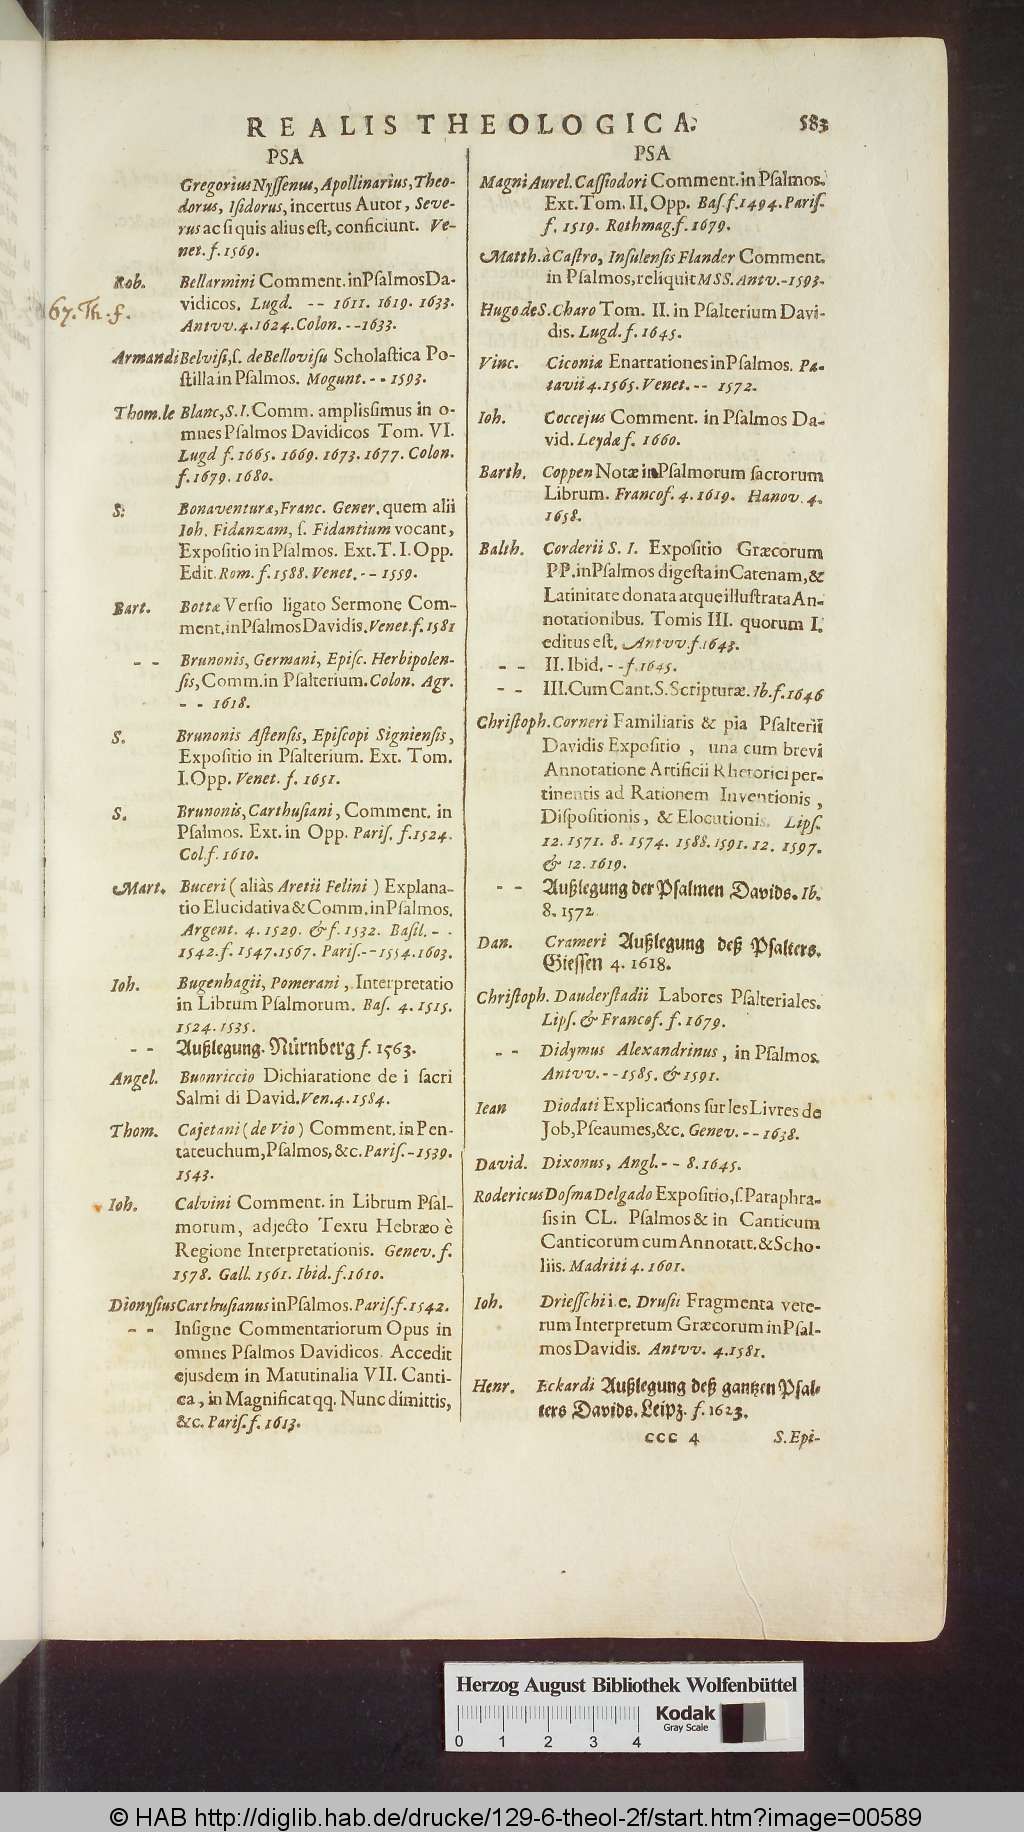 REALIS THEOLOGICA. 583
PSA
Gregorius Nyſſenus, Apollinarius, Theo-
dorus, Iſidorus, incertus Autor, Seve-
rus ac ſi quis alius eſt, conficiunt. Ve-
net. f. 1569.
Rob. Bellarmini Comment. in Pſalmos Da-
vidicos. Lugd. -- 1611. 1619. 1633.
67. Th. f.
Antvv. 4. 1624. Colon. -- 1633.
Armandi Belviſi, ſ. de Belloviſu Scholaſtica Po-
ſtilla in Pſalmos. Mogunt. -- 1593.
Thom. le Blanc, S. I. Comm. ampliſſimus in o-
mnes Pſalmos Davidicos Tom. VI.
Lugd f. 1665. 1669. 1673. 1677. Colon.
f. 1679. 1680.
S. Bonaventuræ, Franc. Gener. quem alii
Ioh. Fidanzam, ſ. Fidantium vocant,
Expoſitio in Pſalmos. Ext. T. I. Opp.
Edit. Rom. f. 1588. Venet. -- 1559.
Bart. Bottæ Verſio ligato Sermone Com-
ment. in Pſalmos Davidis. Venet. f. 1581
-- Brunonis, Germani, Epiſc. Herbipolen-
ſis, Comm. in Pſalterium. Colon. Agr.
-- 1618.
S. Brunonis Aſtenſis, Epiſcopi Signienſis,
Expoſitio in Pſalterium. Ext. Tom.
I. Opp. Venet. f. 1651.
S. Brunonis, Carthuſiani, Comment. in
Pſalmos. Ext. in Opp. Pariſ. f. 1524.
Col. f. 1610.
Mart. Buceri (aliàs Aretii Felini) Explana-
tio Elucidativa & Comm. in Pſalmos.
Argent. 4. 1529. & f. 1532. Baſil. --
1542. f. 1547. 1567. Pariſ. -- 1554. 1603.
Ioh. Bugenhagii, Pomerani, Interpretatio
in Librum Pſalmorum. Baſ. 4. 1515.
1524. 1535.
-- Außlegung. Nürnberg f. 1563.
Angel. Buonriccio Dichiaratione de i ſacri
Salmi di David. Ven. 4. 1584.
Thom. Cajetani (de Vio) Comment. in Pen-
tateuchum, Pſalmos, &c. Pariſ. - 1539.
1543.
Ioh. Calvini Comment. in Librum Pſal-
morum, adjecto Textu Hebræo è
Regione Interpretationis. Genev. f.
1578. Gall. 1561. Ibid. f. 1610.
Dionyſius Carthuſianus in Pſalmos. Pariſ. f. 1542.
-- Inſigne Commentariorum Opus in
omnes Pſalmos Davidicos. Accedit
ejusdem in Matutinalia VII. Canti-
ca, in Magnificat qq. Nunc dimittis,
&c. Pariſ. f. 1613.
PSA
Magni Aurel. Caſſiodori Comment. in Pſalmos.
Ext. Tom. II. Opp. Baſ. f. 1494. Pariſ.
f. 1519. Rothmag. f. 1679.
Matth. à Caſtro, Inſulenſis Flander Comment.
in Pſalmos, reliquit MSS. Antv. - 1593.
Hugo de S. Charo Tom. II. in Pſalterium Davi-
dis. Lugd. f. 1645.
Vinc. Ciconiæ Enarrationes in Pſalmos. Pa-
tavii 4. 1565. Venet. -- 1572.
Ioh. Coccejus Comment. in Pſalmos Da-
vid. Leydæ f. 1660.
Barth. Coppen Notæ in Pſalmorum ſacrorum
Librum. Francof. 4. 1619. Hanov. 4.
1658.
Balth. Corderii S. I. Expoſitio Græcorum
PP. in Pſalmos digeſta in Catenam, &
Latinitate donata atque illuſtrata An-
notationibus. Tomis III. quorum I.
editus eſt. Antvv. f. 1643.
-- II. Ibid. -- f. 1645.
-- III. Cum Cant. S. Scripturæ. Ib. f. 1646
Chriſtoph. Corneri Familiaris & pia Pſalterii
Davidis Expoſitio, una cum brevi
Annotatione Artificii Rhetorici per-
tinentis ad Rationem Inventionis,
Diſpoſitionis, & Elocutionis. Lipſ.
12. 1571. 8. 1574. 1588. 1591. 12. 1597.
& 12. 1619.
-- Außlegung der Pſalmen Davids. Ib.
8. 1572
Dan. Crameri Außlegung deß Pſalters.
Gieſſen 4. 1618.
Chriſtoph. Dauderſtadii Labores Pſalteriales.
Lipſ. & Francof. f. 1679.
-- Didymus Alexandrinus, in Pſalmos.
Antvv. -- 1585. & 1591.
Iean Diodati Explications ſur les Livres de
Job, Pſeaumes, &c. Genev. -- 1638.
David. Dixonus, Angl. -- 8. 1645.
Rodericus Doſma Delgado Expoſitio, ſ. Paraphra-
ſis in CL. Pſalmos & in Canticum
Canticorum cum Annotatt. & Scho-
liis. Madriti 4. 1601.
Ioh. Drieſſchi i. e. Druſii Fragmenta vete-
rum Interpretum Græcorum in Pſal-
mos Davidis. Antvv. 4. 1581.
Henr. Eckardi Außlegung deß gantzen Pſal-
ters Davids. Leipz. f. 1623.
ccc 4 S. Epi-
Herzog August Bibliothek Wolfenbüttel
Kodak
Gray Scale
0 1 2 3 4
© HAB http://diglib.hab.de/drucke/129-6-theol-2f/start.htm?image=00589